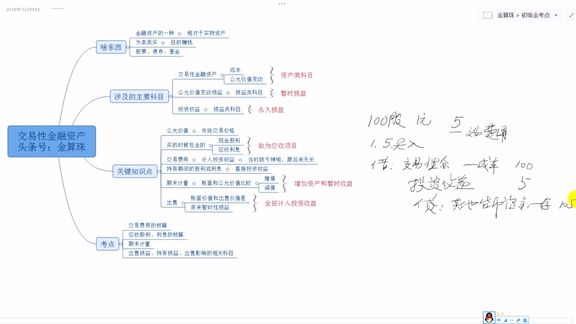 金算珠 > 初级会考点
啥东西
金融资产的一种
相对于实物资产
为卖而买
目的赚钱
股票、债券、基金
涉及的主要科目
交易性金融资产
成本
公允价值变动
资产类科目
公允价值变动损益
损益类科目
暂时损益
投资收益
损益类科目
永久损益
交易性金融资产
头条号：金算珠
关键知识点
公允价值
市场交易价格
买的时候包含的
现金股利
应收利息
做为应收项目
交易费用
计入投资收益
当时就亏掉啦，跟后来无关
持有期间的股利或利息
直接投资收益
期末计量
账面和公允价值比较
增值
减值
增加资产和暂时收益
出售
账面价值和出售价值差
原来暂时性损益
全部计入投资收益
考点
交易费用的核算
应收股利、利息的核算
期末计量
出售损益、持有损益、出售影响的相关科目
100股 1元 5
1.5买入
借：交易性金 —成本 100
投资收益 5
贷：其他货币资金—存 105